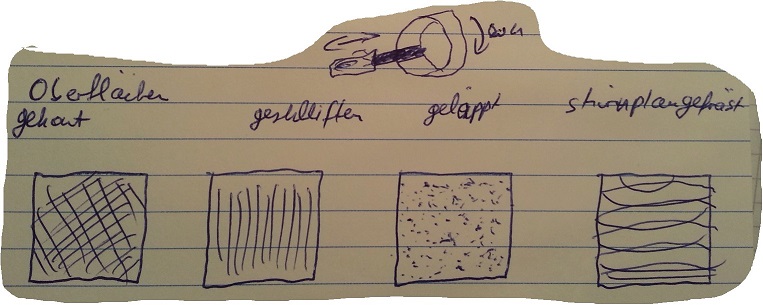 Oberflächen
gehont geschliffen geläppt stirnplangefräst